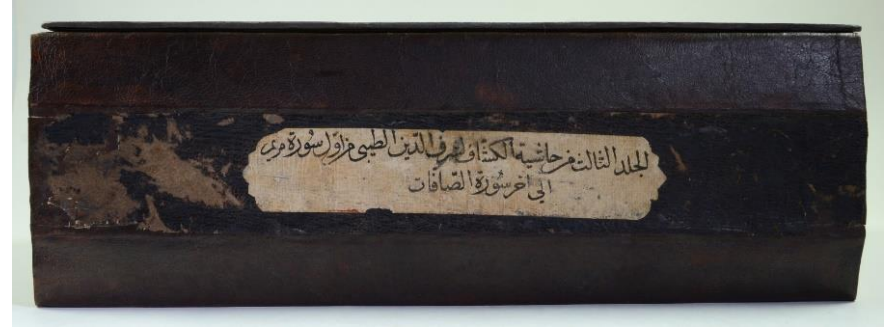 الجلد الثالث من حاشية الكشاف لشرف الدين الطيبى من اول سورة مريم
الى آخر سورة الصافات